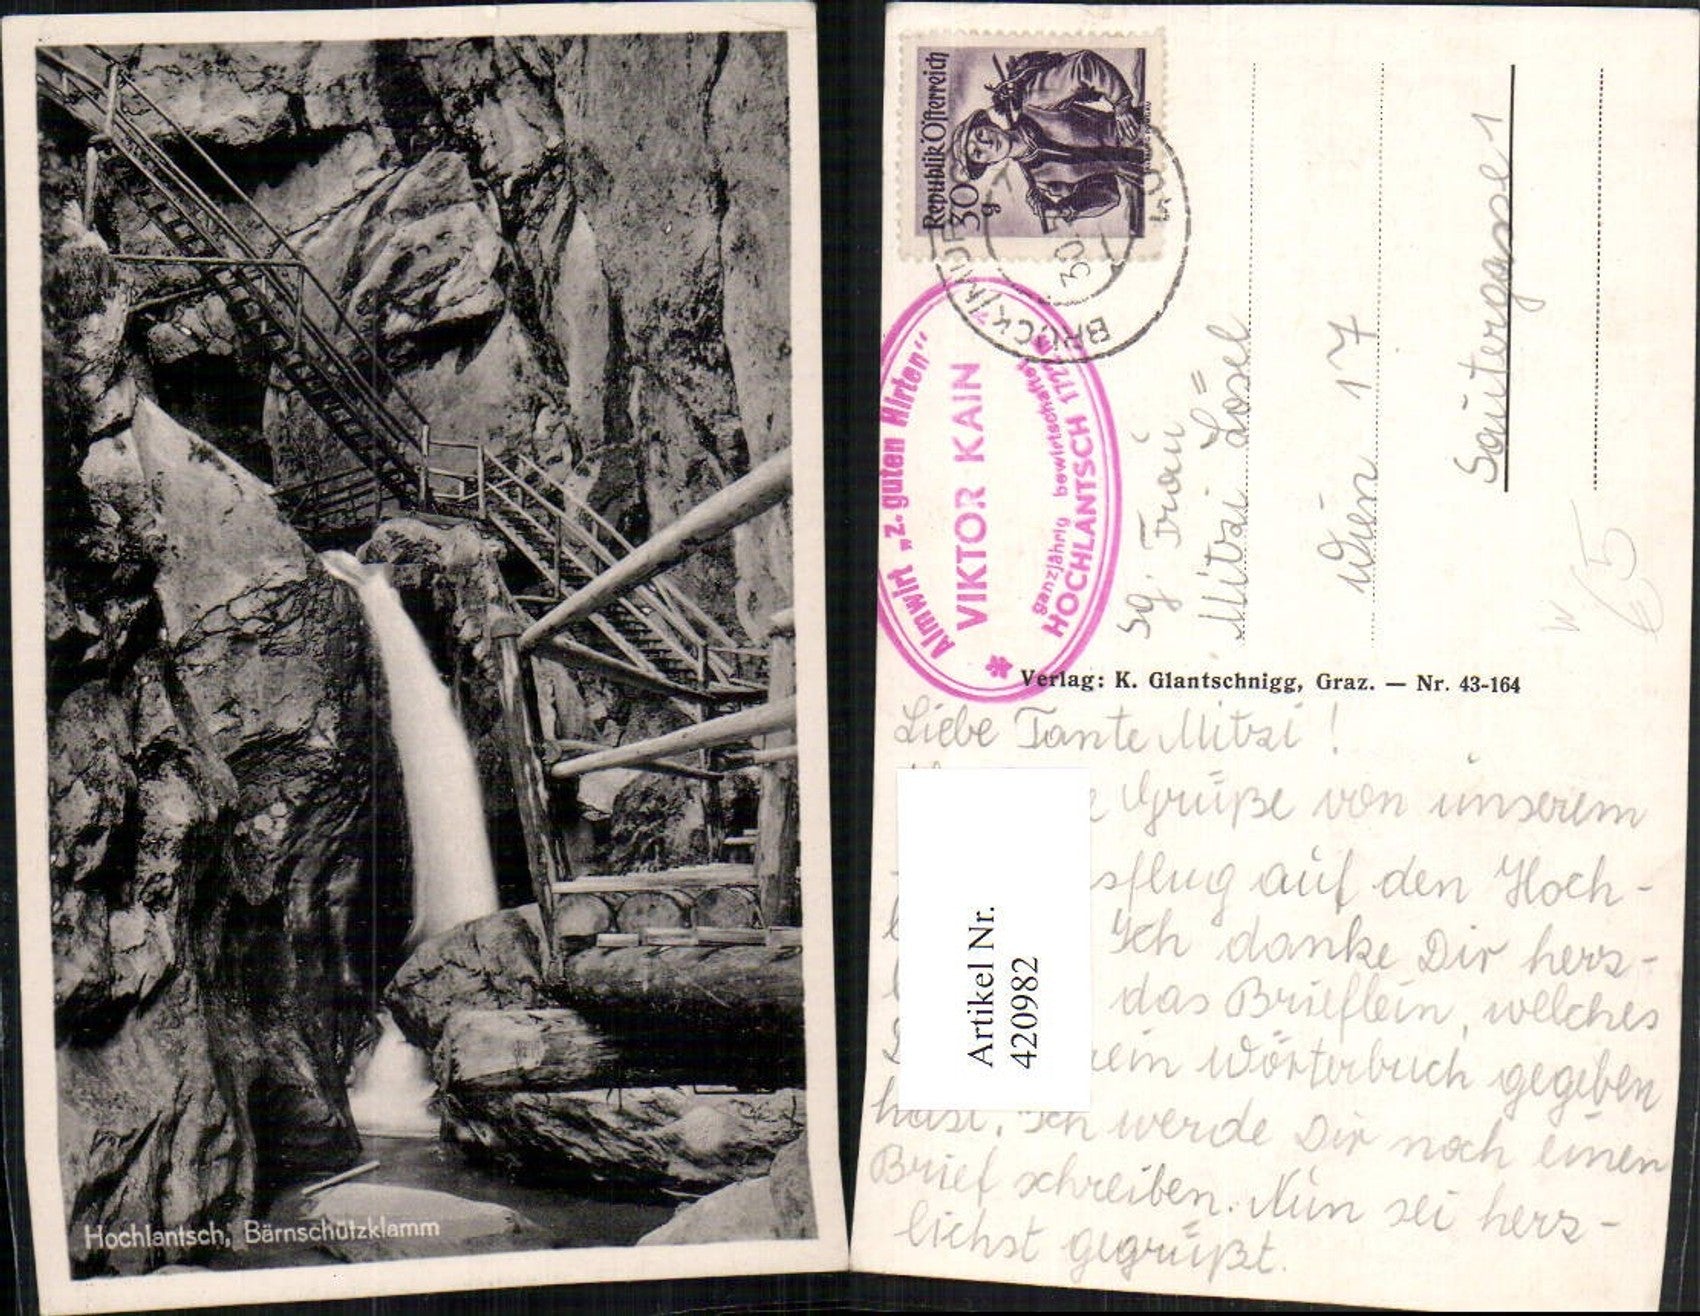 Hochlantsch, Bärnschützklamm
Republik Österreich
30
BRUCK
Almwirt „z. guten Hirten"
VIKTOR KAIN
ganzjährig bewirtschaftet
HOCHLANTSCH
Sg. Frau
Mitzi Lösel
Wien 17
Sautergasse 1
W
€5
Verlag: K. Glantschnigg, Graz. — Nr. 43-164
Liebe Tante Mitzi!
Grüße von unserem
sflug auf den Hoch-
Ich danke Dir herz-
das Brieflein, welches
ein Wörterbuch gegeben
hast. Ich werde Dir noch einen
Brief schreiben. Nun sei herz-
lichst gegrüßt.
Artikel Nr.
420982